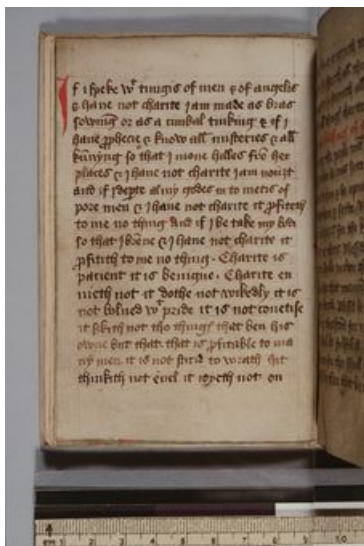 If i speke wt tungis of men & of angelis
& haue not charite I am made as bras
sownyng or as a cimbal tinking & if i
haue pphecie & know all misteries & all
kunnyng so that i moue hilles fro her
places & i haue not charite I am nouzt
and if i depte al my godes in to metis of
pore men & I haue not charite it pfiteth
to me no thing And if I be take my bodi
so that I brene & I haue not charite it
pfitith to me no thing. Charite is
pacient it is benigne. Charite en
uieth not it dothe not wikedly it is
not bolned wt pride it is not couetise
it sekith not tho things that ben his
owne but that that is pfitable to ma
ny men it is not stirid to wrath hit
thinkith not euel it ioyeth not on
4
cm 1 2 3 4 5 6 7 8 9 10